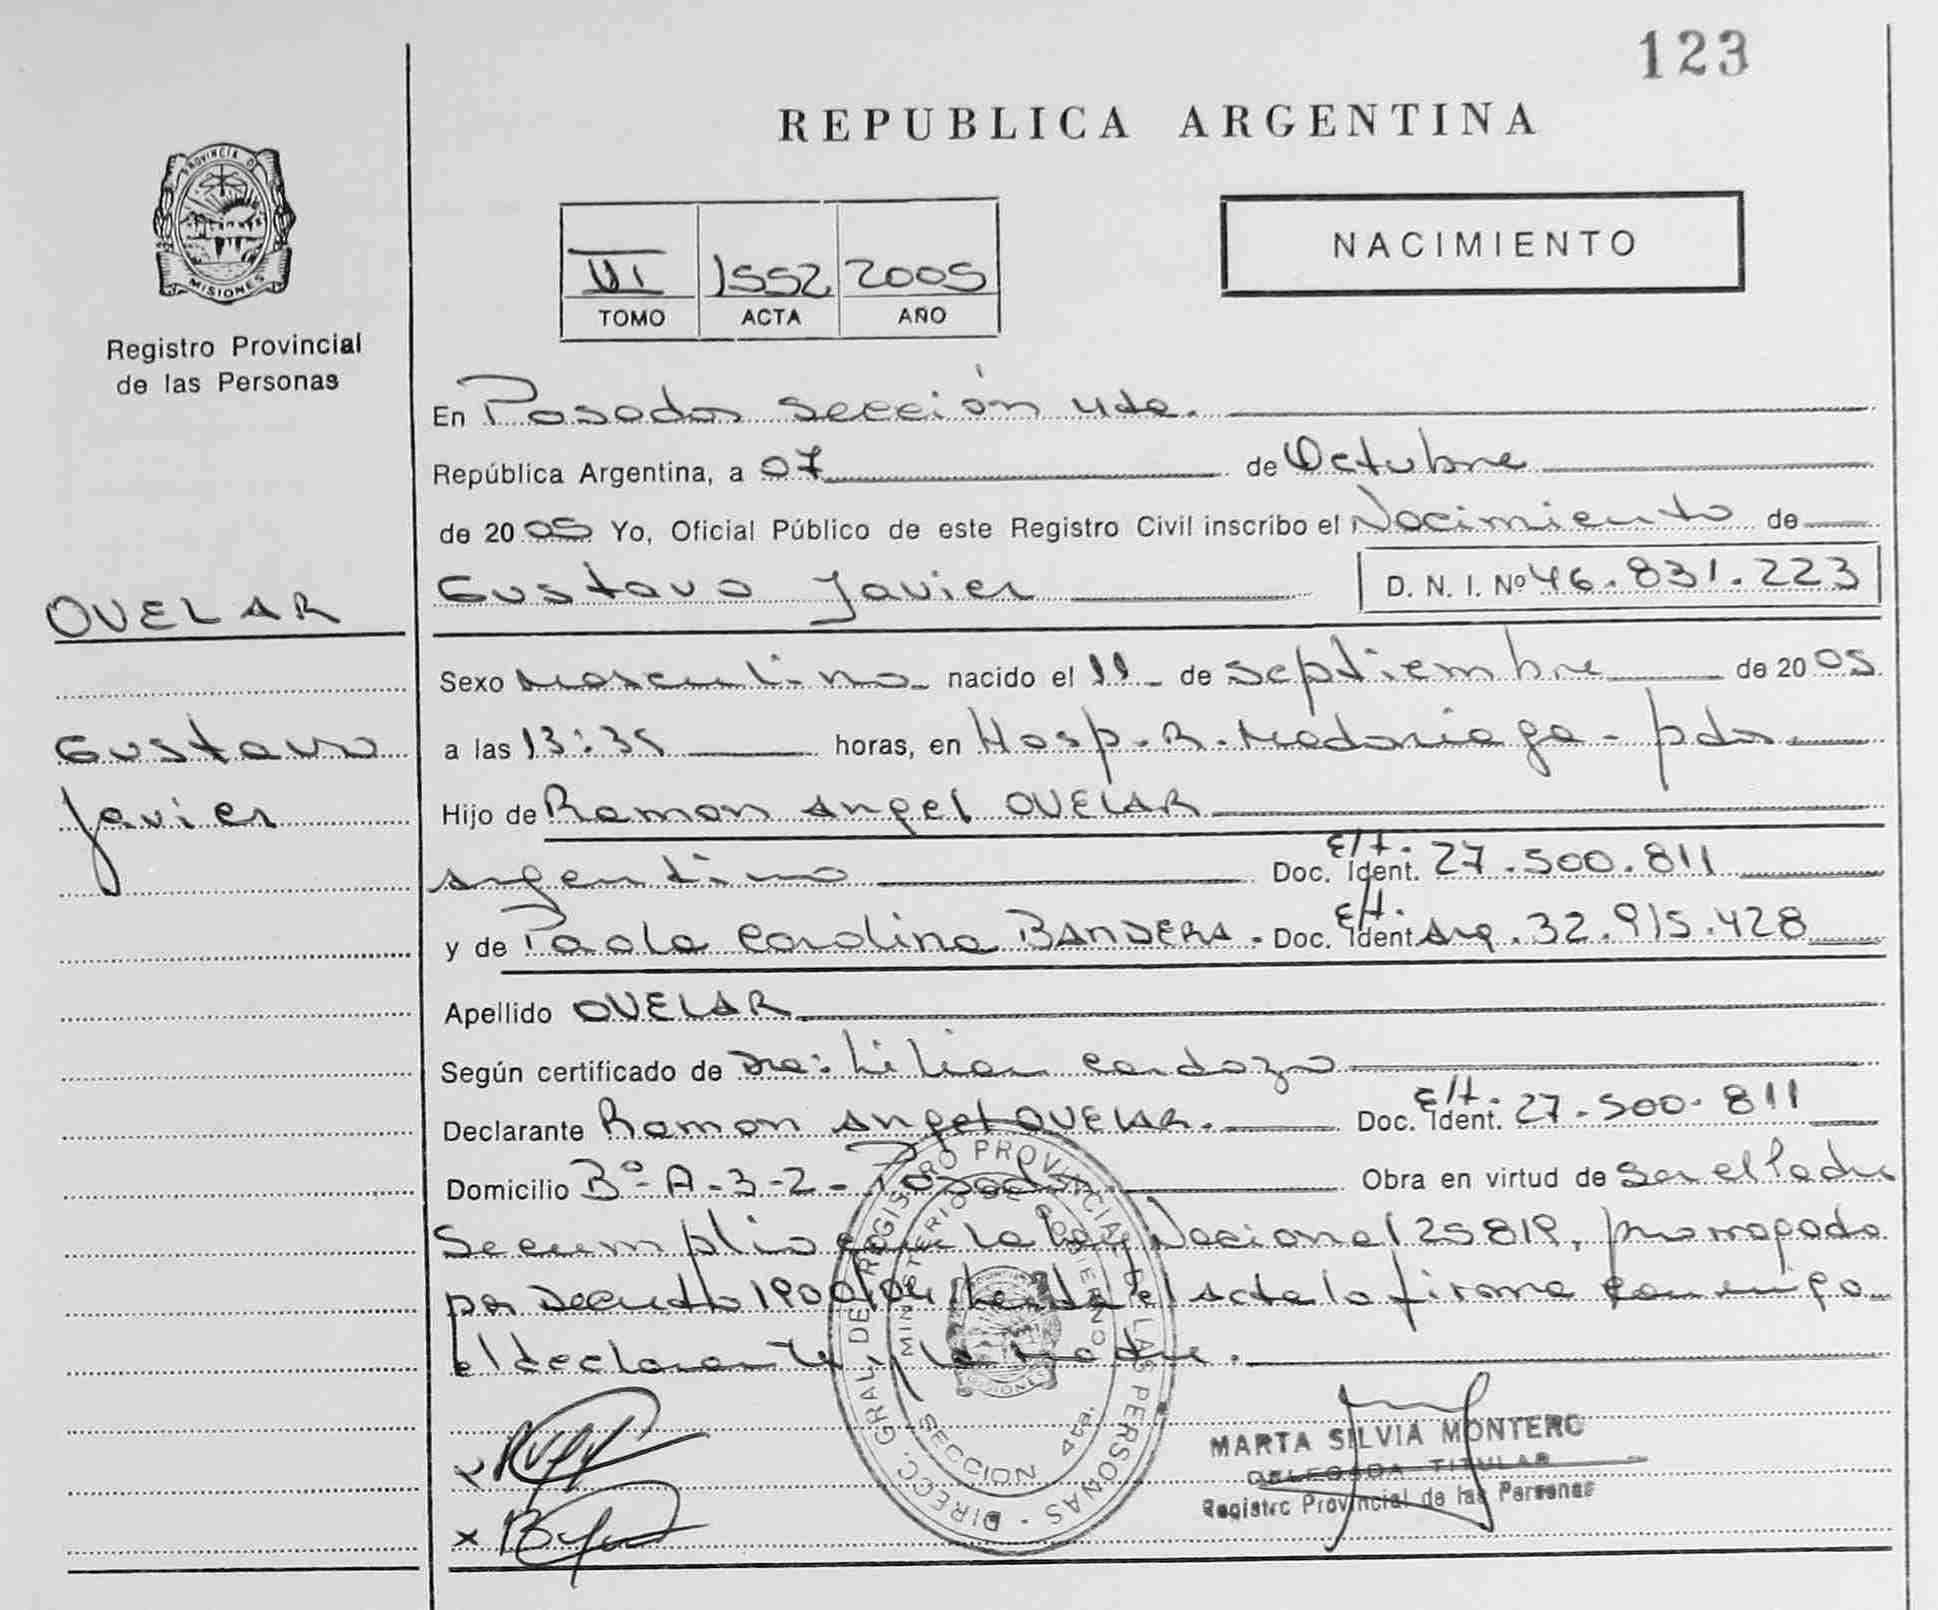 123
REPUBLICA ARGENTINA
PROVINCIA DE
MISIONES
Registro Provincial
de las Personas
VI 1552 2005
TOMO ACTA AÑO
NACIMIENTO
En Posadas sección 4ta.
República Argentina, a 07 de Octubre
de 2005 Yo, Oficial Público de este Registro Civil inscribo el Nacimiento de
OVELAR
Gustavo Javier D. N. I. Nº 46.831.223
Sexo Masculino nacido el 11 de septiembre de 2005
Gustavo
Javier
a las 13:35 horas, en Hosp. R. Madariaga - pdas
Hijo de Ramon Angel OVELAR
argentino Doc. Ident. 27.500.811
y de Paola Carolina BANDERA. Doc. Ident. Arg. 32.915.428
Apellido OVELAR
Según certificado de Dra: Lilian Cardozo
Declarante Ramon Angel OVELAR. Doc. Ident. 27.500.811
Domicilio Bº A-3-2- Posadas Obra en virtud de ser el Padre
Se cumplio con la Ley Nacional 25819, prorrogada
por Decreto 1900/04 Leida el acta la firma conmigo
el declarante y la madre.
DIRECC. GRAL. DE REGISTRO PROVINCIAL DE LAS PERSONAS
MINISTERIO DE GOBIERNO
SECCION 4ta.
MISIONES
MARTA SILVIA MONTERO
DELEGADA TITULAR
Registro Provincial de las Personas